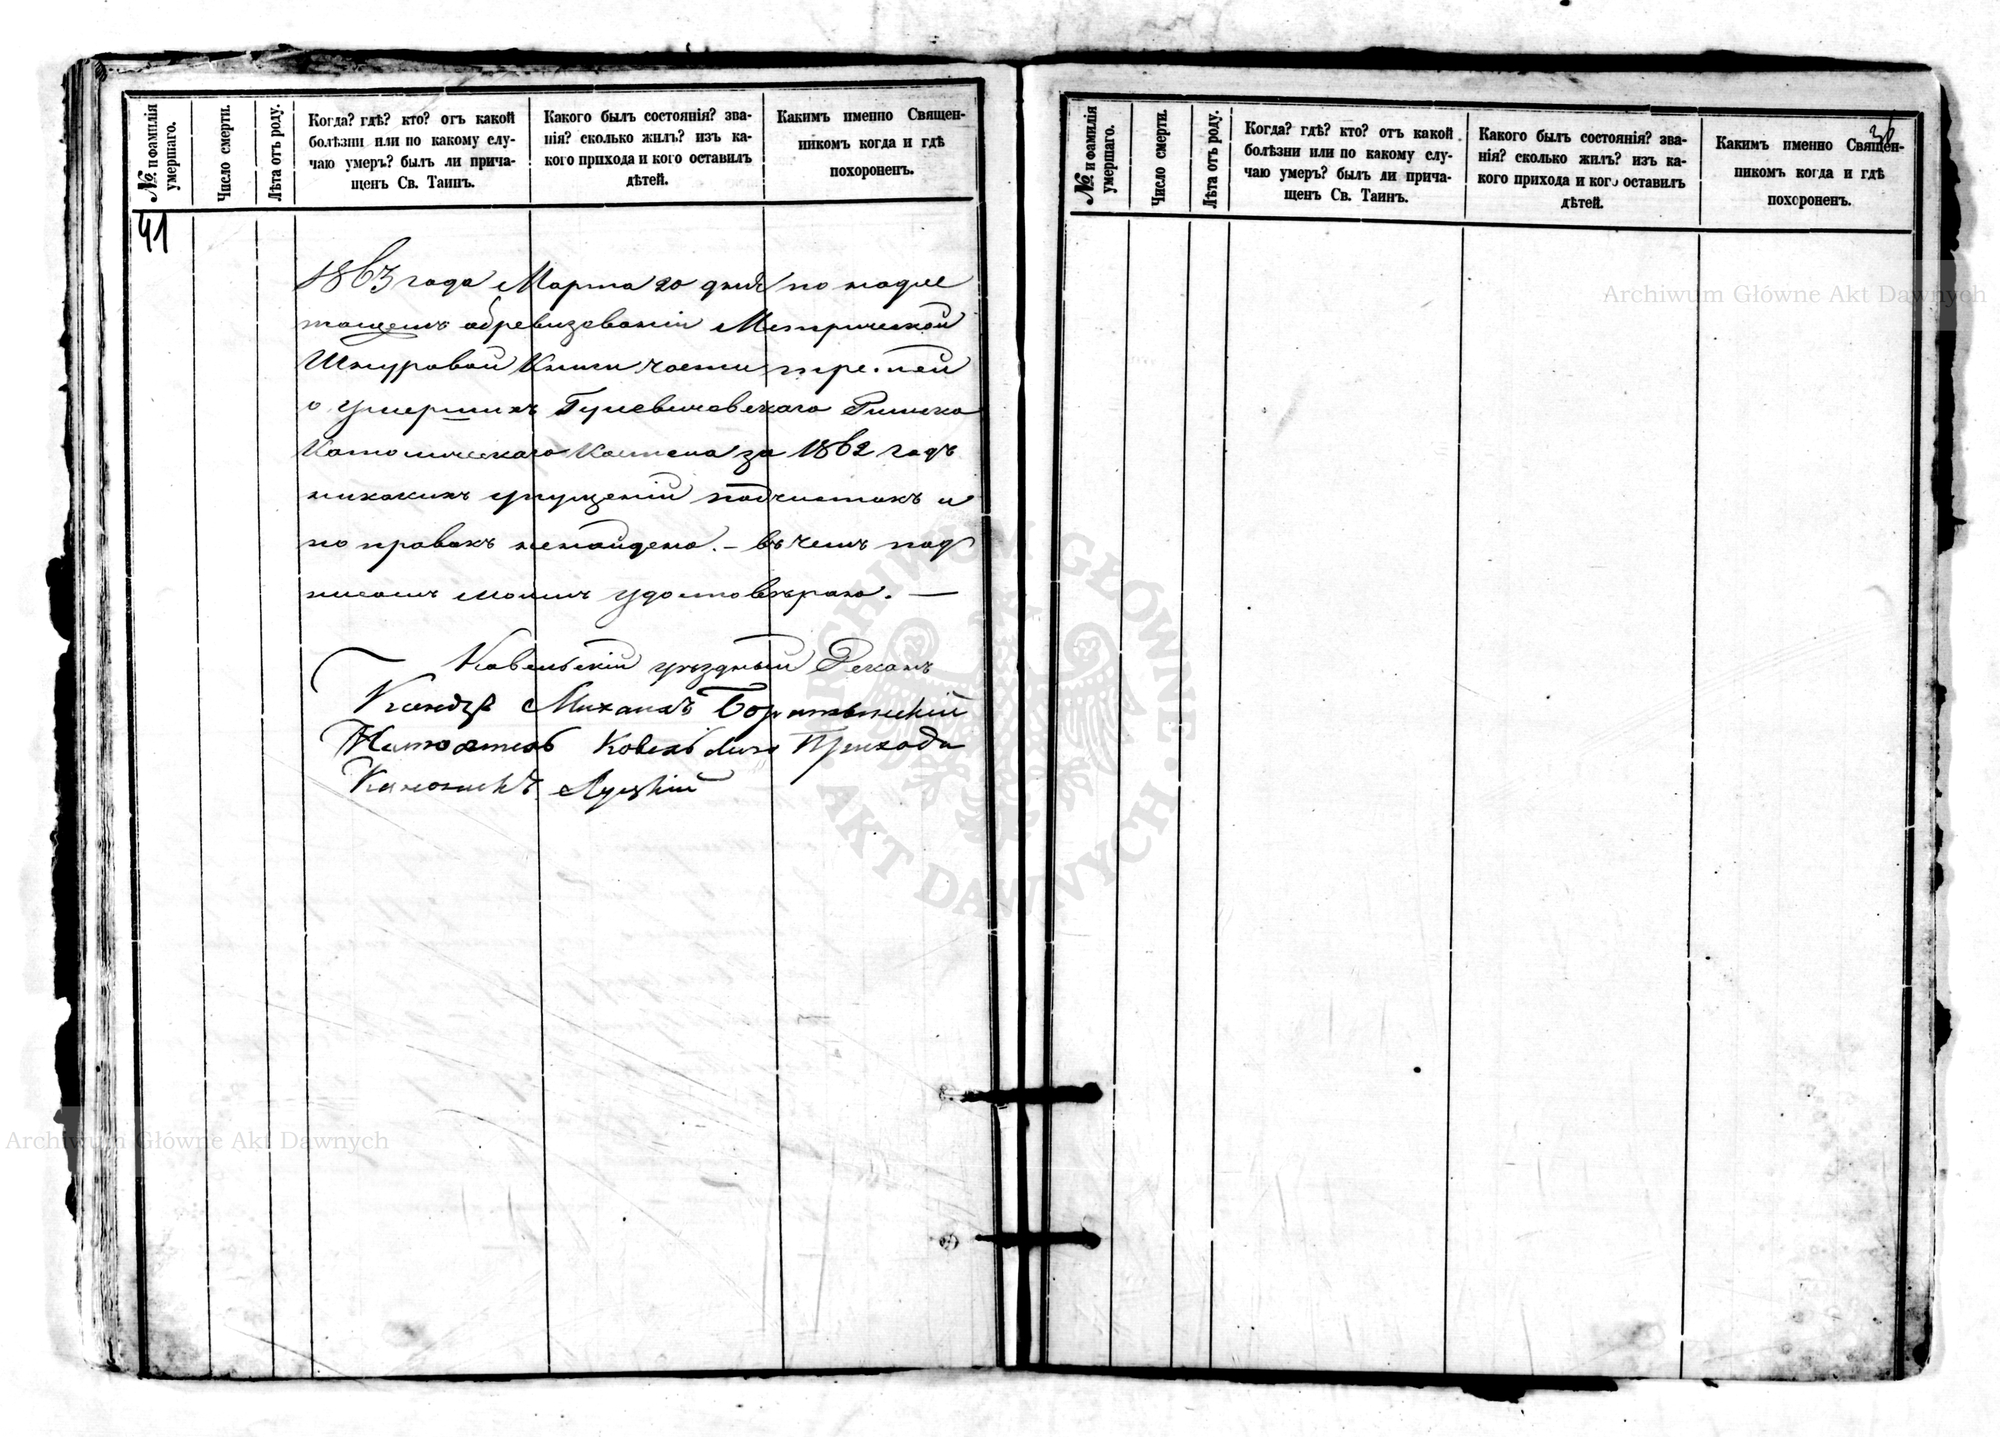 № и фамилія
умершаго.
Число смерти.
Лѣта отъ роду.
Когда? гдѣ? кто? отъ какой
болѣзни или по какому слу-
чаю умеръ? былъ ли прича-
щенъ Св. Таинъ.
Какого былъ состоянія? зва-
нія? сколько жилъ? изъ ка-
кого прихода и кого оставилъ
дѣтей.
Какимъ именно Священ-
никомъ когда и гдѣ
похороненъ.
41
1863 года Марта 20 дня по надле
жащемъ обревизованіи Метрической
Шнуровой Книги части третей
о умершихъ Римско
Католическаго Костела за 1862 годъ
никакихъ упущеній подчистокъ и
поправокъ ненайдено. – въ чемъ под
писомъ моимъ удостовѣряю. —
Ковельскій уѣздный Деканъ
Ксендзъ Михаилъ
Настоятель Ковельскаго Прихода
Каноникъ Луцкій
№ и фамилія
умершаго.
Число смерти.
Лѣта отъ роду.
Когда? гдѣ? кто? отъ какой
болѣзни или по какому слу-
чаю умеръ? былъ ли прича-
щенъ Св. Таинъ.
Какого былъ состоянія? зва-
нія? сколько жилъ? изъ ка-
кого прихода и кого оставилъ
дѣтей.
36
Какимъ именно Священ-
никомъ когда и гдѣ
похороненъ.
Archiwum Główne Akt Dawnych
ARCHIWUM GŁÓWNE AKT DAWNYCH
Archiwum Główne Akt Dawnych